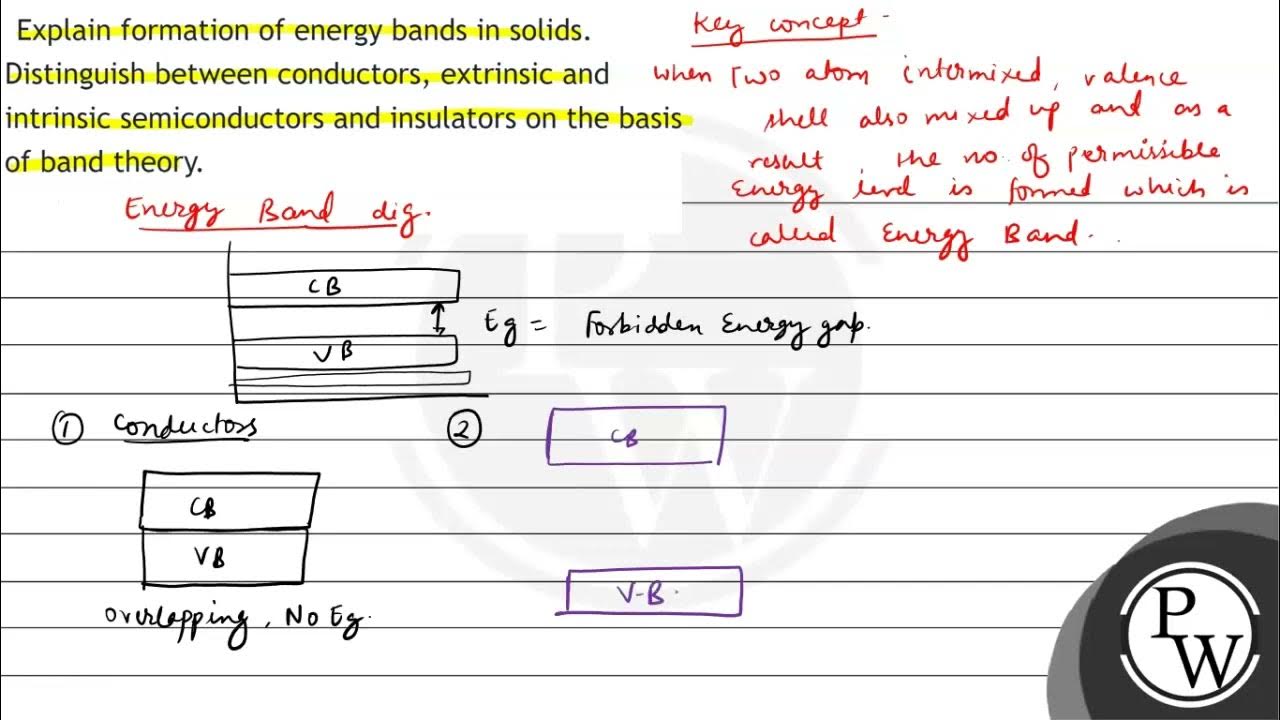 Explain formation of energy bands in solids.
Distinguish between conductors, extrinsic and
intrinsic semiconductors and insulators on the basis
of band theory.
Key concept -
when Two atom intermixed, valence
shell also mixed up and as a
result the no. of permissible
Energy level is formed which is
called Energy Band.
Energy Band dig.
CB
Eg = Forbidden Energy gap.
VB
① Conductors
②
CB
CB
VB
V-B.
overlapping, No Eg.
PW
PW